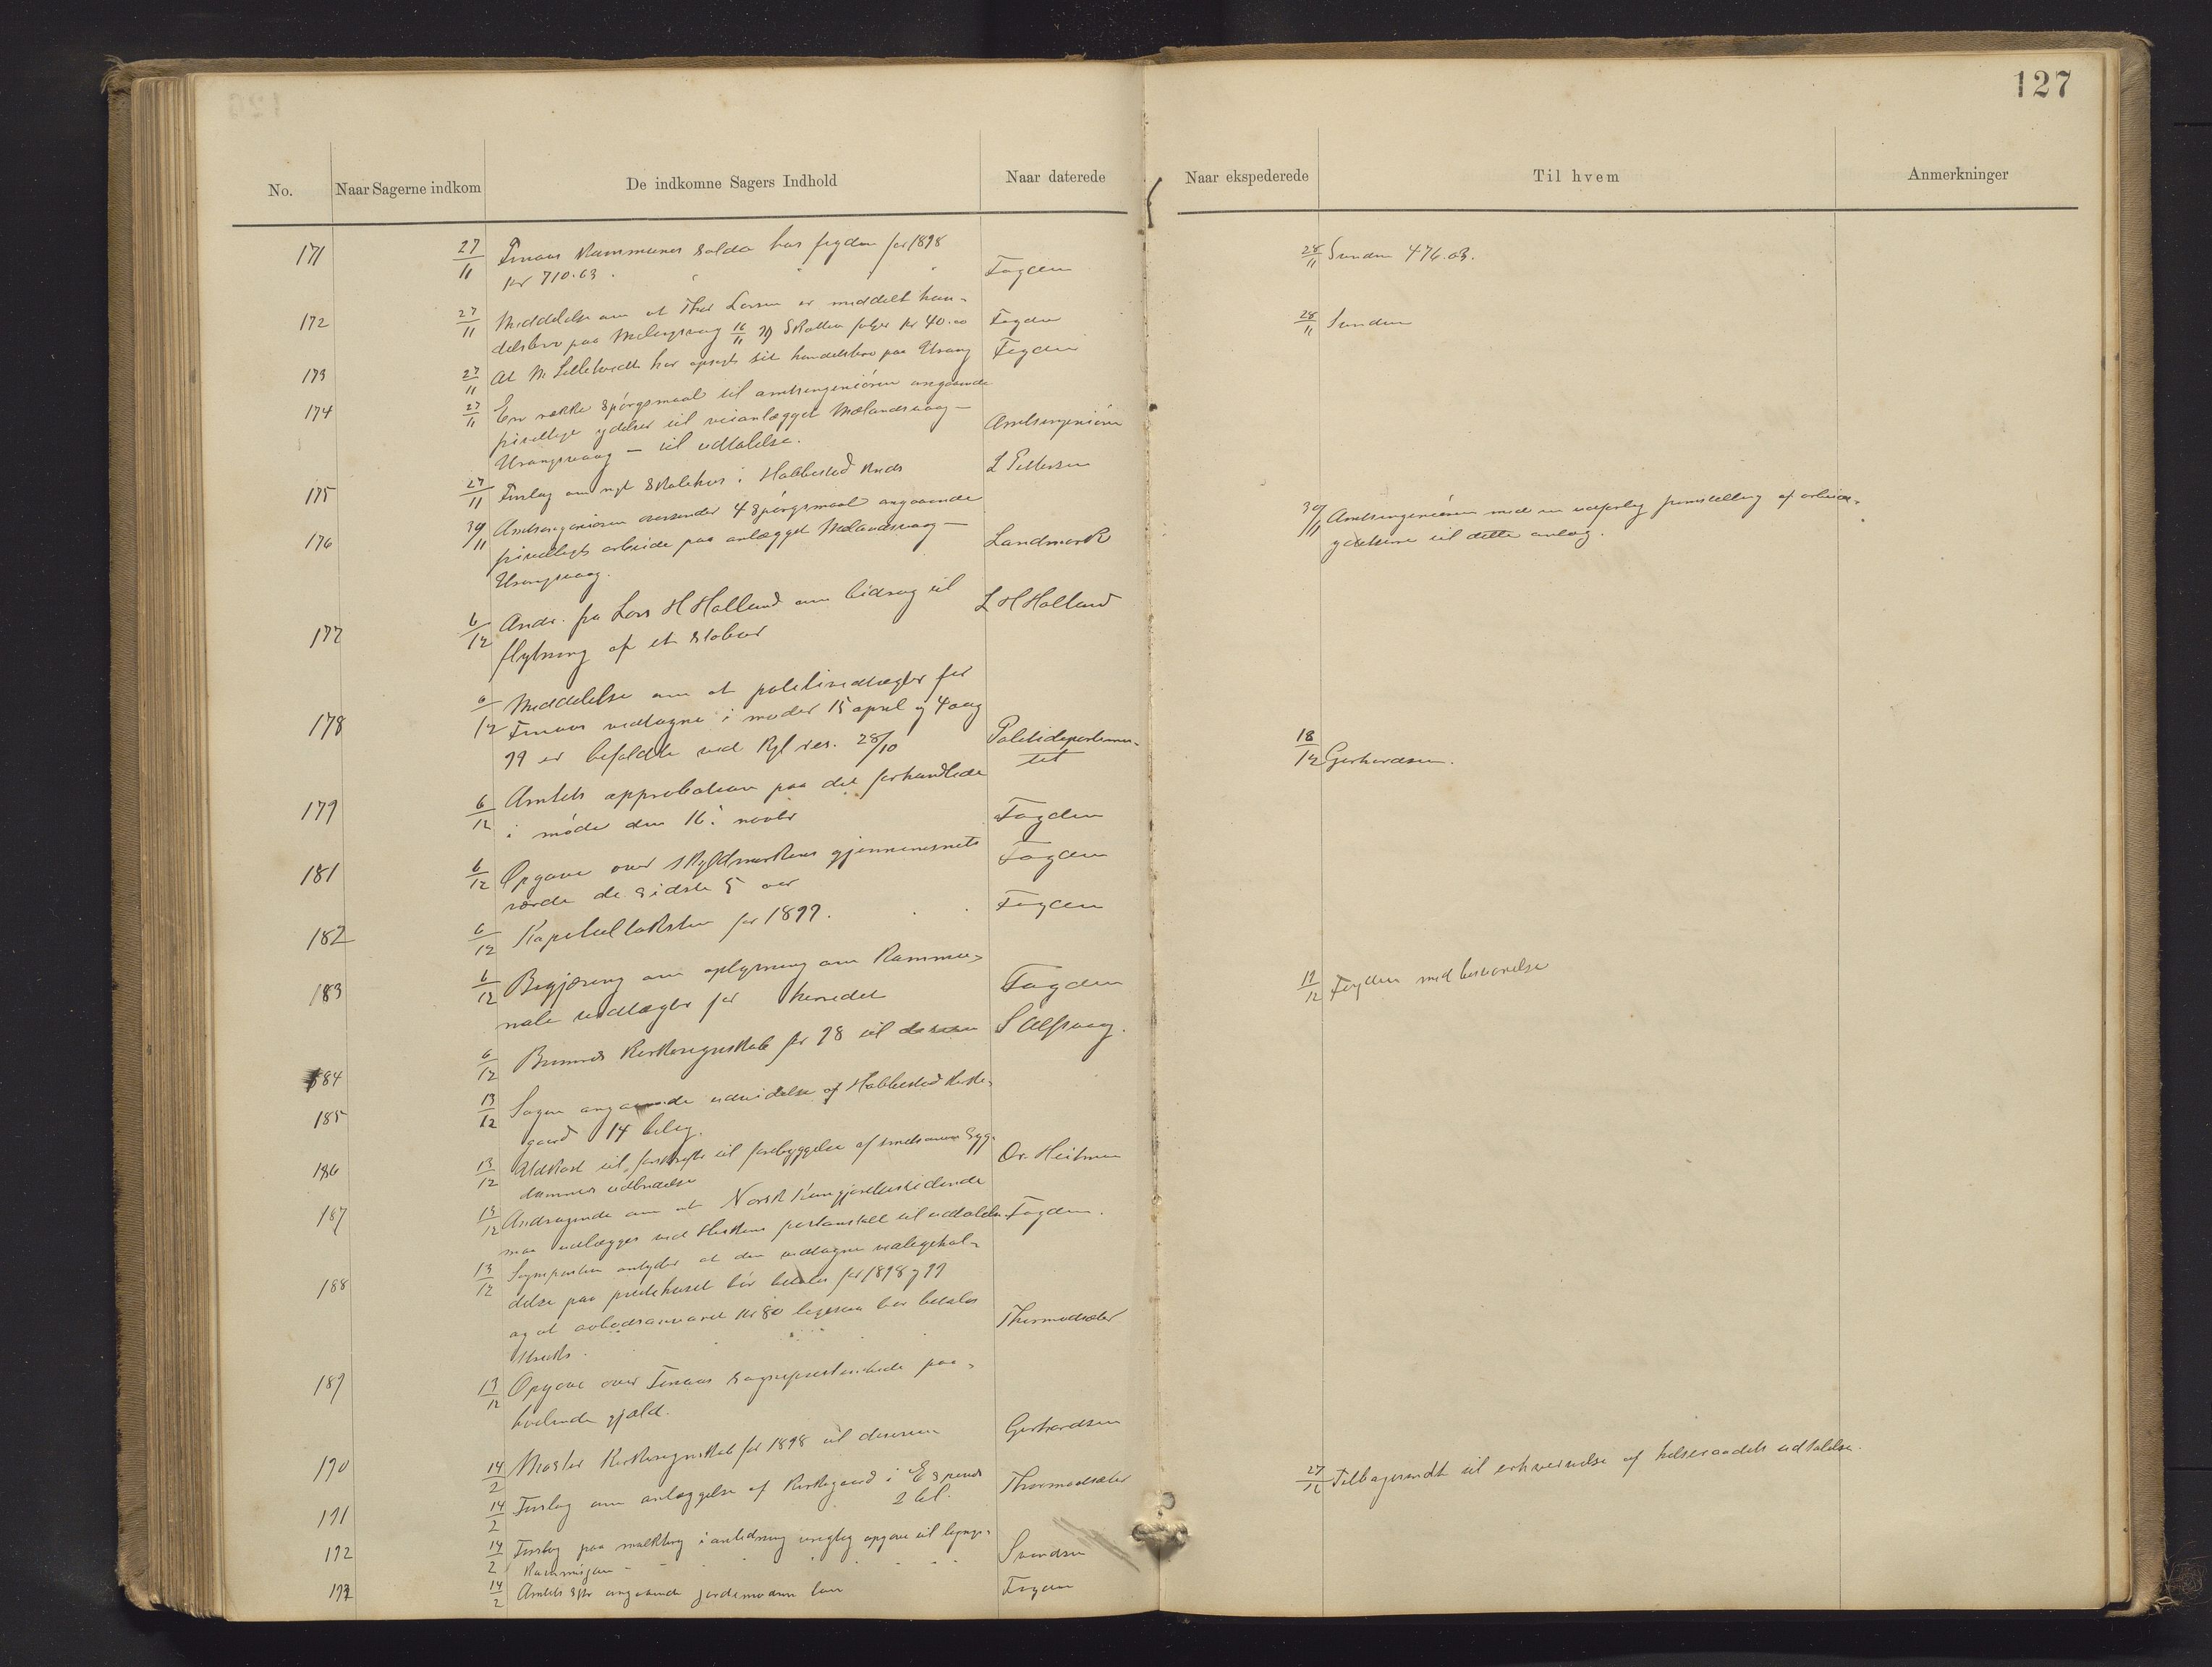 127
No. Naar Sagerne indkom De indkomne Sagers Indhold Naar daterede Naar ekspederede Til hvem Anmerkninger
171 27/11 Finaas Kommunes Saldo hos fogden for 1898
kr 710.63. Fogden 28/11 Svendsen 476.03.
172 27/11 Meddelelse om at Thor Larsen er meddelt han-
delsbrev paa Melingsvaag 16/11 99 Skatten følger kr 40.00 Fogden 28/11 Svendsen
173 27/11 At M. Lilletvedt har opsagt sit handelsbrev paa Urang Fogden
174 27/11 En række Spørgsmaal til amtsingeniøren angaaende
frivillige ydelser til veianlægget Mælandsvaag -
Urangsvaag - til udtalelse. Amtsingeniøren
175 27/11 Forslag om nyt Skolehus i Habbestad kreds L Pettersen
176 30/11 Amtsingeniøren oversender 4 Spørgsmaal angaaende
frivilligt arbeide paa anlægget Mælandsvaag -
Urangsvaag. Landmark 30/11 Amtsingeniøren med en udførlig fremstilling af arbeids-
ydelserne til dette anlæg.
177 6/12 Andr. fra Lars H Holland om bidrag til
flytning af et Stabur L H Holland
178 6/12 Meddelelse om at politivedtægter for
Finaas vedtagne i møder 15 april og 4 aug
99 er befaldte ved Kgl res. 28/10 Politidepartemen-
tet 18/12 Gerhardsen.
179 6/12 Amtets approbation paa det forhandlede
i møde den 16. novbr Fogden
181 6/12 Opgave over skyldmarkens gjennemsnits
værdi de sidste 5 aar Fogden
182 6/12 Kapiteltaksten for 1899. Fogden
183 6/12 Begjæring om oplysning om Kommu-
nale vedtægter for herredet Fogden 11/12 Fogden med besvarelse
184 6/12 Bremnes Kirkeregnskab for 98 til decision S Alsvaag.
185 13/12 Sagen angaaende udvidelse af Habbestad kirke-
gaard 14 bilag.
186 13/12 Udkast til forskrifter til forebyggelse af smitsomme Syg-
dommes udbredelse Dr. Heitman
187 13/12 Andragende om at Norsk Kungjørelsestidende
maa udlægges ved Hiskens postanstalt til udtalelse Fogden.
188 13/12 Sognepresten antyder at den vedtagne vedligehol-
delse paa prestehuset bør betales for 1898 og 99
og at aabodsansvaret kr 80 ligesaa bør betales
straks. Thormodsæter
189 13/12 Opgave over Finaas Sognepresteembede paa-
hvilende gjæld.
190 14/2 Moster Kirkeregnskab for 1898 til decision Gerhardsen
191 14/2 Forslag om anlæggelse af Kirkegaard i Espenes
2 bil. Thormodsæter 27/12 Tilbagesendt til erhvervelse af helseraadets udtalelse.
192 14/2 Forslag paa mulktering i anledning urigtig opgave til lignings-
kommisjon - Svendsen
193 14/2 Amtets Skr angaaende jordemoderen løn Fogden